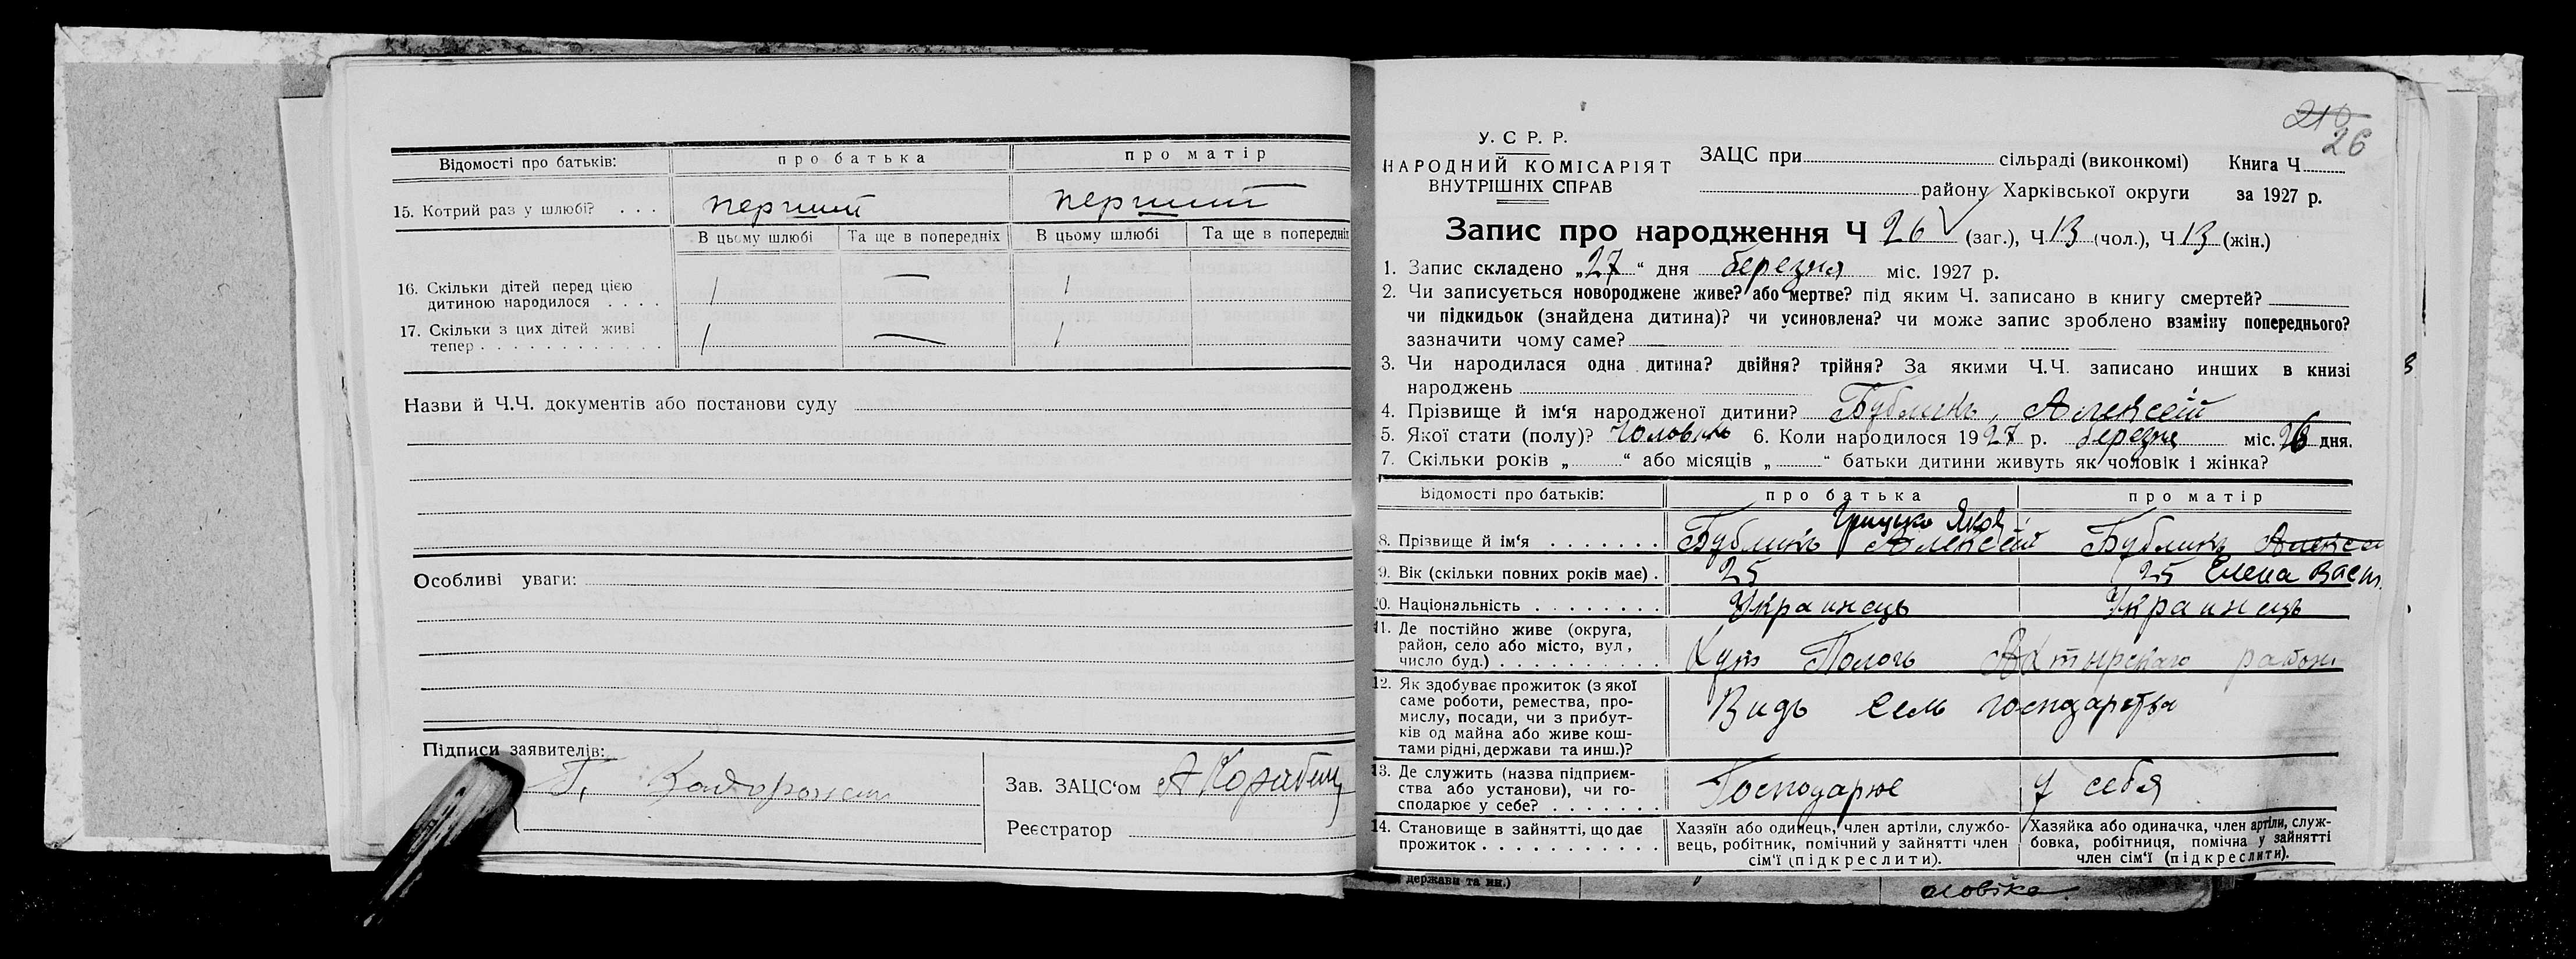 Відомості про батьків: про батька про матір
15. Котрий раз у шлюбі? . . . перший перший
В цьому шлюбі Та ще в попередніх В цьому шлюбі Та ще в попередніх
16. Скільки дітей перед цією
дитиною народилося . . . . 1 — 1
17. Скільки з цих дітей живі
тепер . . . . . . . . . . . . 1 — 1
Назви й Ч.Ч. документів або постанови суду
Особливі уваги:
Підписи заявителів:
Г.
Зав. ЗАЦС‘ом
Реєстратор
210
26
У. С Р. Р.
НАРОДНИЙ КОМІСАРІЯТ
ВНУТРІШНІХ СПРАВ
ЗАЦС при сільраді (виконкомі) Книга Ч.
району Харківської округи за 1927 р.
Запис про народження Ч 26 (заг.), Ч 13 (чол.), Ч 13 (жін.)
1. Запис складено „27“ дня березня міс. 1927 р.
2. Чи записується новороджене живе? або мертве? під яким Ч. записано в книгу смертей?
чи підкидьок (знайдена дитина)? чи усиновлена? чи може запис зроблено взаміну попереднього?
зазначити чому саме?
3. Чи народилася одна дитина? двійня? трійня? За якими Ч.Ч. записано инших в книзі
народжень
4. Прізвище й ім‘я народженої дитини? Бубликъ, Алексей
5. Якої стати (полу)? 6. Коли народилося 1927 р. березня міс. 26 дня.
7. Скільки років „ “ або місяців „ “ батьки дитини живуть як чоловік і жінка?
Відомості про батьків: про батька про матір
Грицько Яков
8. Прізвище й ім‘я . . . . . . . Бубликъ Алексей Бубликъ Алексе
9. Вік (скільки повних років має) . 25 25 Елена Васил.
10. Національність . . . . . . . . Украинець Украинець
11. Де постійно живе (округа,
район, село або місто, вул,
число буд.) . . . . . . . . . . . Ахтирскаго район
12. Як здобуває прожиток (з якої
саме роботи, ремества, про-
мислу, посади, чи з прибут-
ків од майна або живе кош-
тами рідні, держави та инш.)? Видь сель господарства
13. Де служить (назва підприєм-
ства або установи), чи го-
сподарює у себе? . . . . . . . Господарює у себя
14. Становище в зайнятті, що дає
прожиток . . . . . . . . . . .
Хазяїн або одинець, член артіли, службо-
вець, робітник, помічний у зайнятті член
сім‘ї (підкреслити).
Хазяйка або одиначка, член артіли, служ-
бовка, робітниця, помічна у зайнятті
член сім‘ї (підкреслити).
держави та ин.)
оловіка